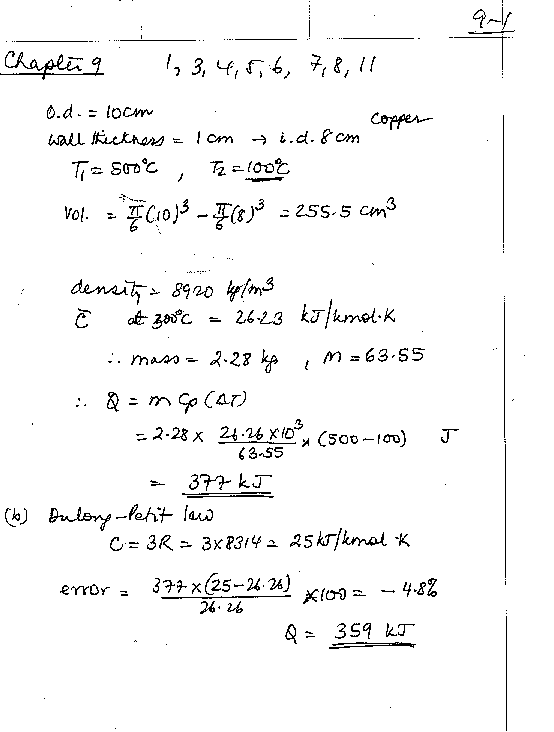 9-1
Chapter 9 1, 3, 4, 5, 6, 7, 8, 11
O.d. = 10cm
Copper
wall thickness = 1 cm → i.d. 8 cm
T₁ = 500°C , T₂ = 100°C
Vol. = π/6 (10)³ - π/6 (8)³ = 255.5 cm³
density = 8920 kg/m³
C̄ at 300°C = 26.23 kJ/kmol·K
∴ mass = 2.28 kg , M = 63.55
∴ Q = m Cp (ΔT)
= 2.28 × 26.26 × 10³/63.55 × (500-100) J
= 377 kJ
(b) Dulong-Petit law
C = 3R = 3×8314 = 25 kJ/kmol·K
error = 377 × (25-26.26)/26.26 × 100 = - 4.8%
Q = 359 kJ